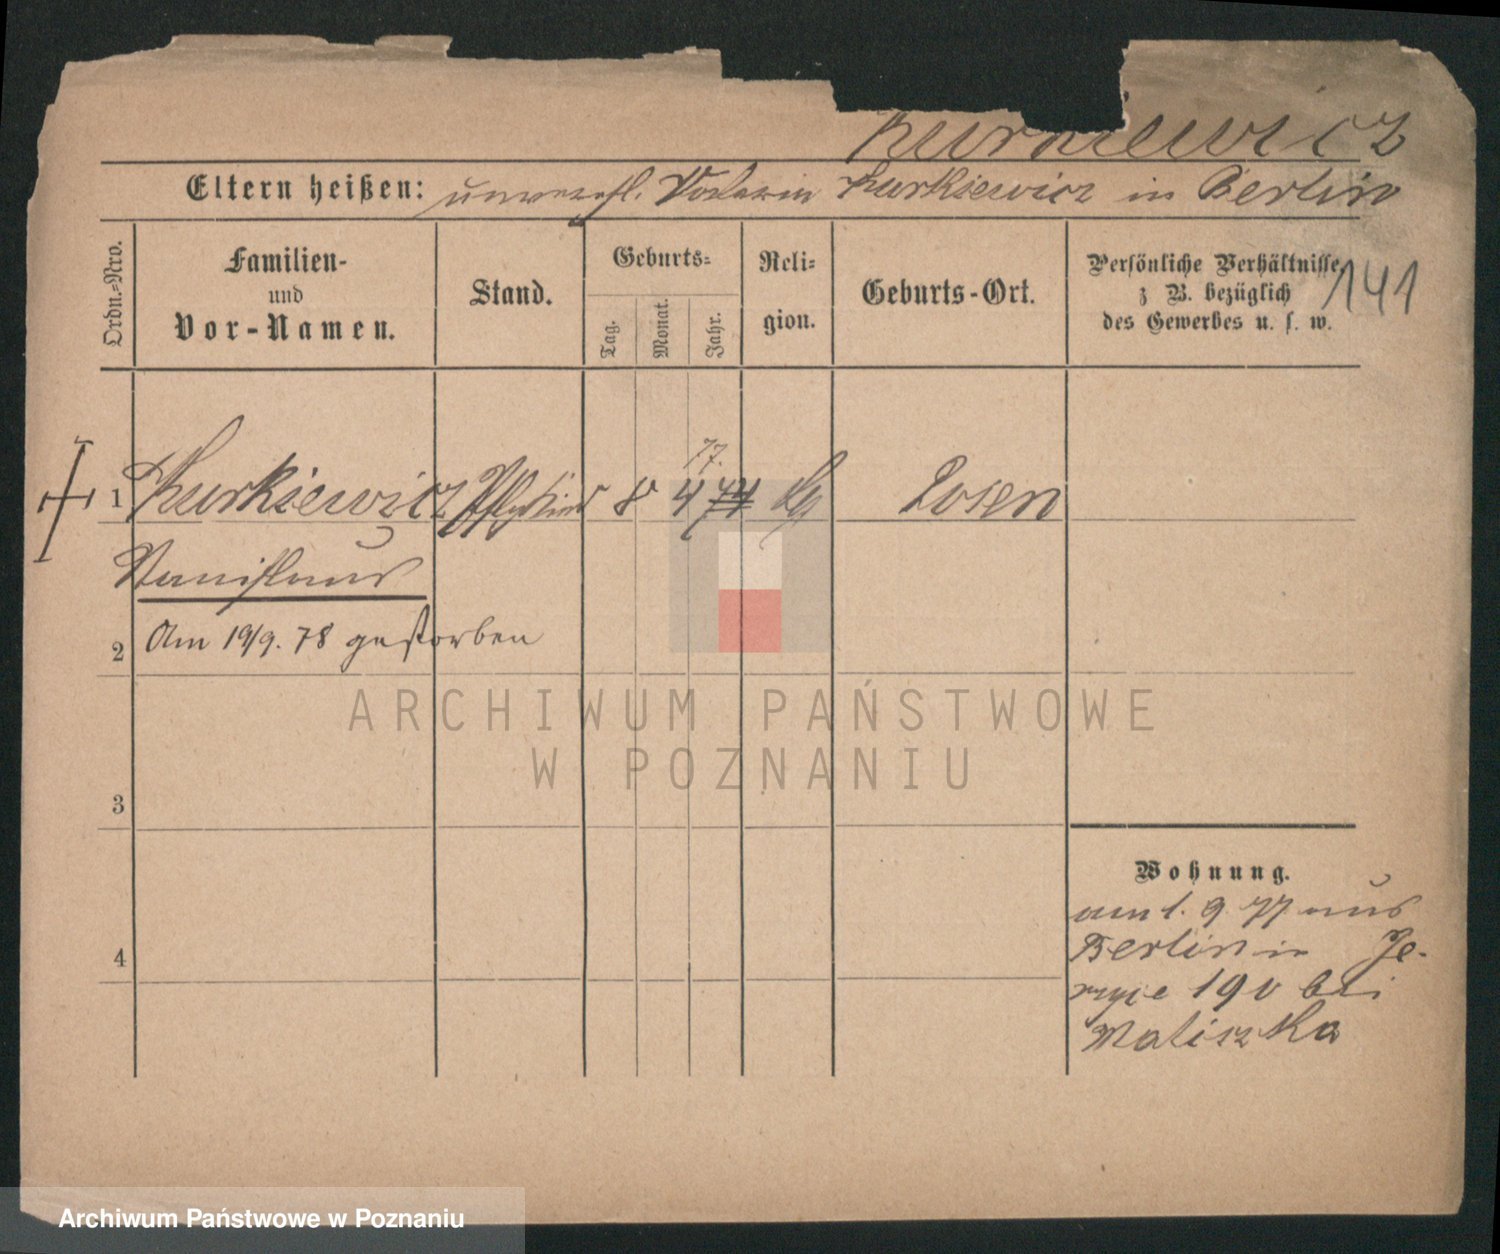 Kurkiewicz
Eltern heißen: unverehl. Kurkiewicz in Berlin
Ordn.-Nro.
Familien-
und
Vor-Namen.
Stand.
Geburts-
Tag.
Monat.
Jahr.
Reli-
gion.
Geburts-Ort.
Persönliche Verhältnisse
z B. bezüglich
des Gewerbes u. s. w.
141
77.
1 Kurkiewicz Pflegkind 8 4 74 Posen
Stanislaus
2 Am 19/9. 78 gestorben
ARCHIWUM PAŃSTWOWE
W POZNANIU
3
Wohnung.
am 1. 9 77 aus
Berlin in Je-
rzyce 190 bei
Matiszka
4
Archiwum Państwowe w Poznaniu